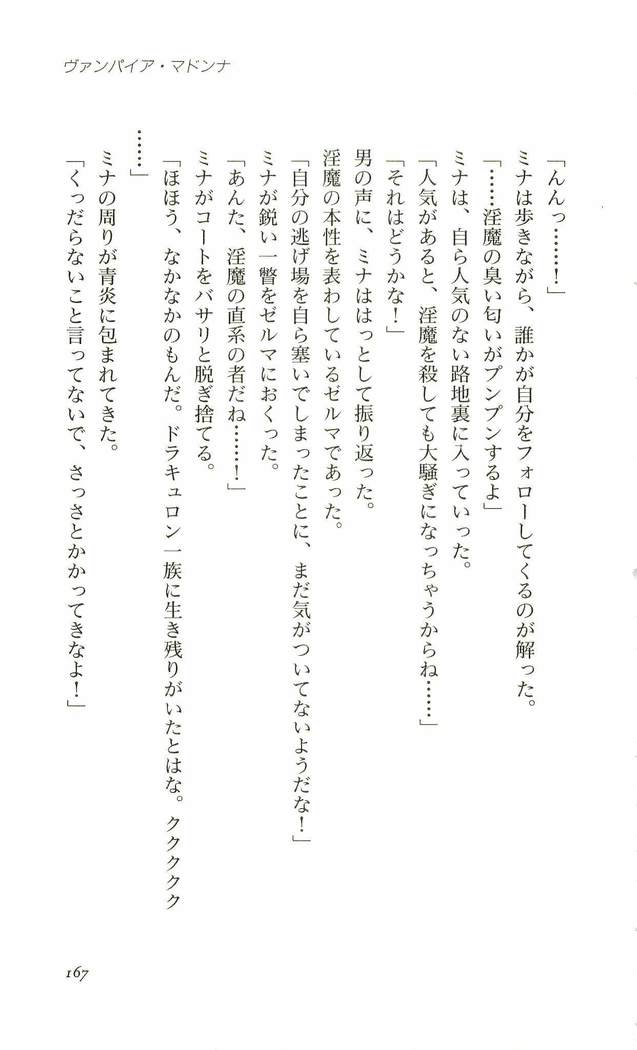 ヴァンパイア・マドンナ
「んんっ………！」
ミナは歩きながら、誰かが自分をフォローしてくるのが解った。
「……淫魔の臭い匂いがプンプンするよ」
ミナは、自ら人気のない路地裏に入っていった。
「人気があると、淫魔を殺しても大騒ぎになっちゃうからね……」
「それはどうかな！」
男の声に、ミナははっとして振り返った。
淫魔の本性を表わしているゼルマであった。
「自分の逃げ場を自ら塞いでしまったことに、まだ気がついてないようだな！」
ミナが鋭い一瞥をゼルマにおくった。
「あんた、淫魔の直系の者だね……！」
ミナがコートをバサリと脱ぎ捨てる。
「ほほう、なかなかのもんだ。ドラキュロン一族に生き残りがいたとはな。ククククク
……」
ミナの周りが青炎に包まれてきた。
「くっだらないこと言ってないで、さっさとかかってきなよ！」
167